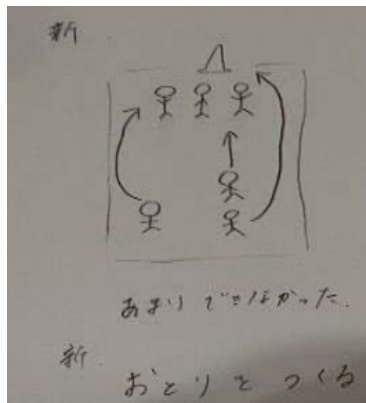 新
あまりできなかった.
新.
おとりをつくる